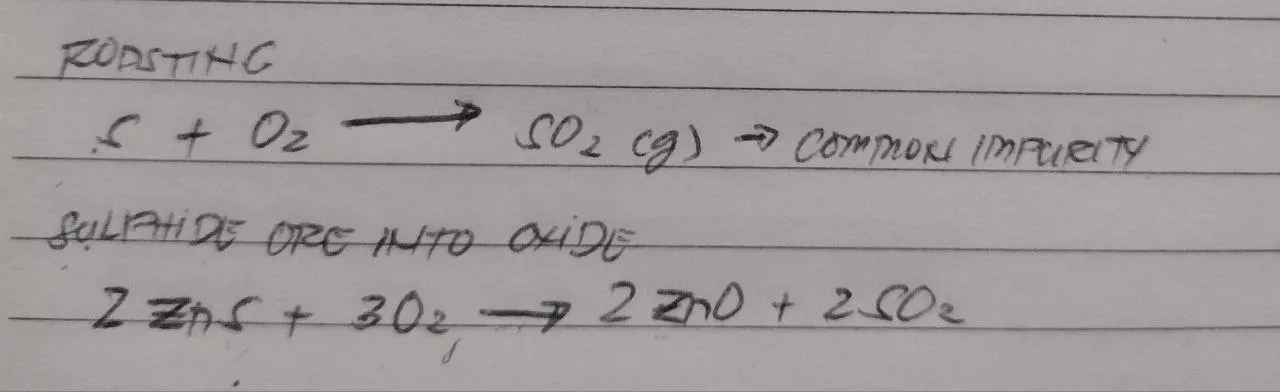 ROASTING
S + O₂ ⟶ SO₂ (g) → COMMON IMPURITY
SULPHIDE ORE INTO OXIDE
2 ZnS + 3O₂ ⟶ 2 ZnO + 2SO₂